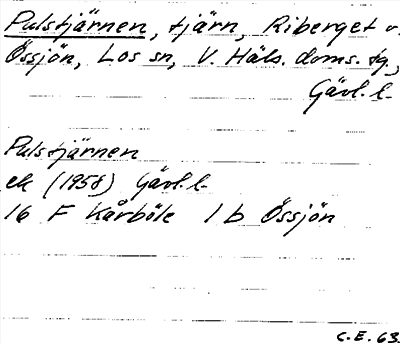 Pulstjärnen, tjärn, Riberget o.
Össjön, Los sn, V. Häls. doms. tg.,
Gävl. l.
Pulstjärnen
ek (1958) Gävl. l.
16 F Kårböle 1 b Össjön
C.E. 63